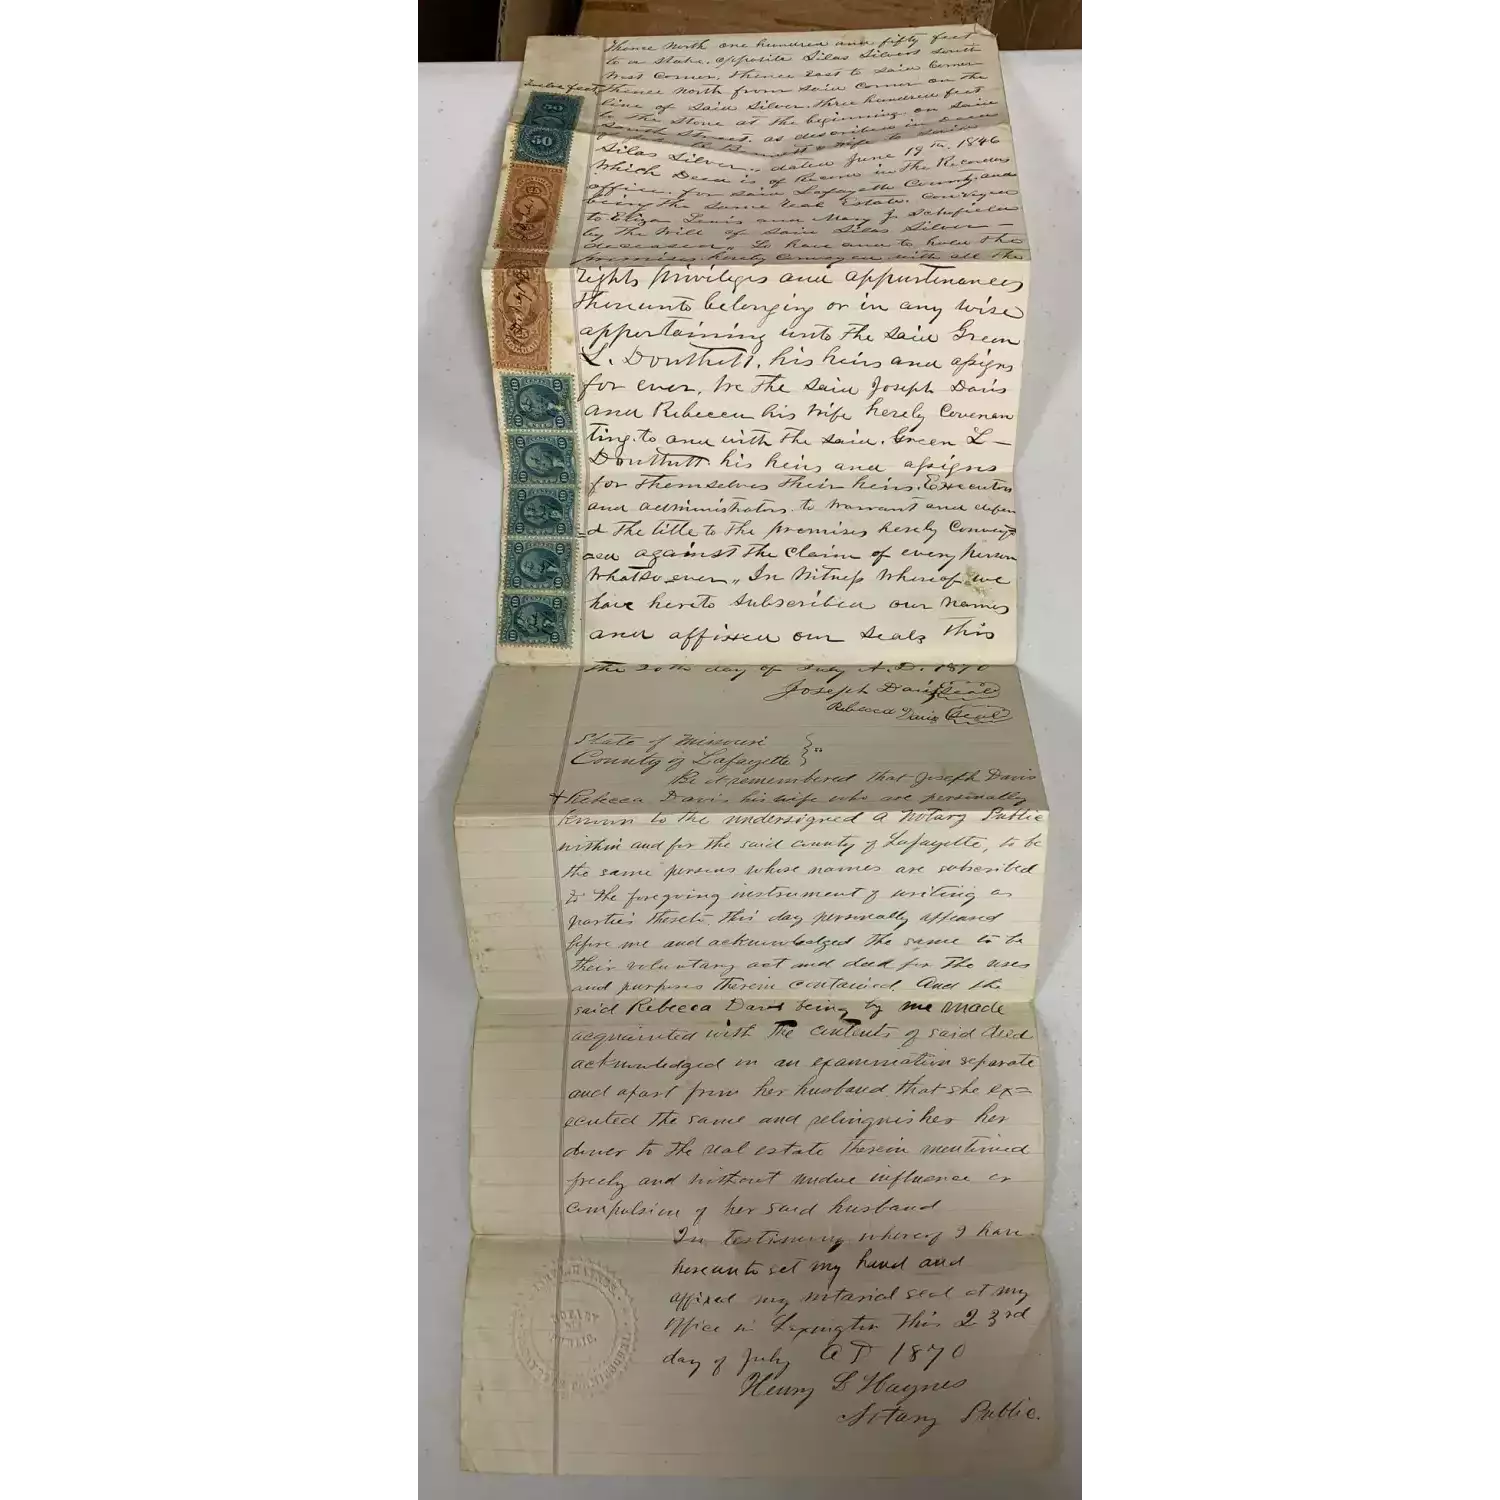 Thence North one hundred and fifty feet
to a stake. opposite Silas Silvers South
West Corner. Thence East to said Corner
Twelve feet Thence North from said Corner on the
line of said Silver. Three hundred feet
to the Stone at the beginning on said
South Street. as described in Deed
Bennett & wife to
Silas Silver., dated June 19th. 1846
Which Deed is of Record in The Recorders
office. for said Lafayette County. and
being the same real Estate. Conveyed
to Eliza Lewis and Mary J Schofield
by the Will of said Silas Silver —
deceased,, To have and to hold the
premises hereby Conveyed with all the
rights privileges and appurtenances
thereunto belonging or in any wise
appertaining unto the said Green
L. Douthitt. his heirs and assigns
for ever. We the said Joseph Davis
and Rebecca his wife hereby Covenan
ting. to and with the said. Green L —
Douthitt. his heirs and assigns
for themselves their heirs. Executors
and administrators. to warrant and defen
=d the title to the premises hereby Convey=
=ed against the claim of every person
Whatso ever,, In Witness Whereof we
have hereto subscribed our names
and affixed our seals this
the 20th day of July A.D. 1870
Joseph Davis Seal
Rebecca Davis Seal
State of Missouri
County of Lafayette
Be it remembered that Joseph Davis
+ Rebecca Davis his wife who are personally
known to the undersigned a Notary Public
within and for the said county of Lafayette, to be
the same persons whose names are subscribed
to the foregoing instrument of writing as
parties thereto. this day personally appeared
before me and acknowledged the same to be
their voluntary act and deed for the uses
and purposes therein contained. And the
said Rebecca Davis being by me made
acquainted with the contents of said deed
acknowledged on an examination separate
and apart from her husband, that she ex=
ecuted the same and relinquishes her
dower to the real estate therein mentioned
freely and without undue influence or
compulsion of her said husband
In testimony whereof I have
hereunto set my hand and
affixed my notarial seal at my
office in Lexington this 23rd
day of July AD 1870
Henry L Haynes
Notary Public.
50
50
25
10 CENTS 10
10 10
10 10
10 10
10 10
NOTARY
PUBLIC